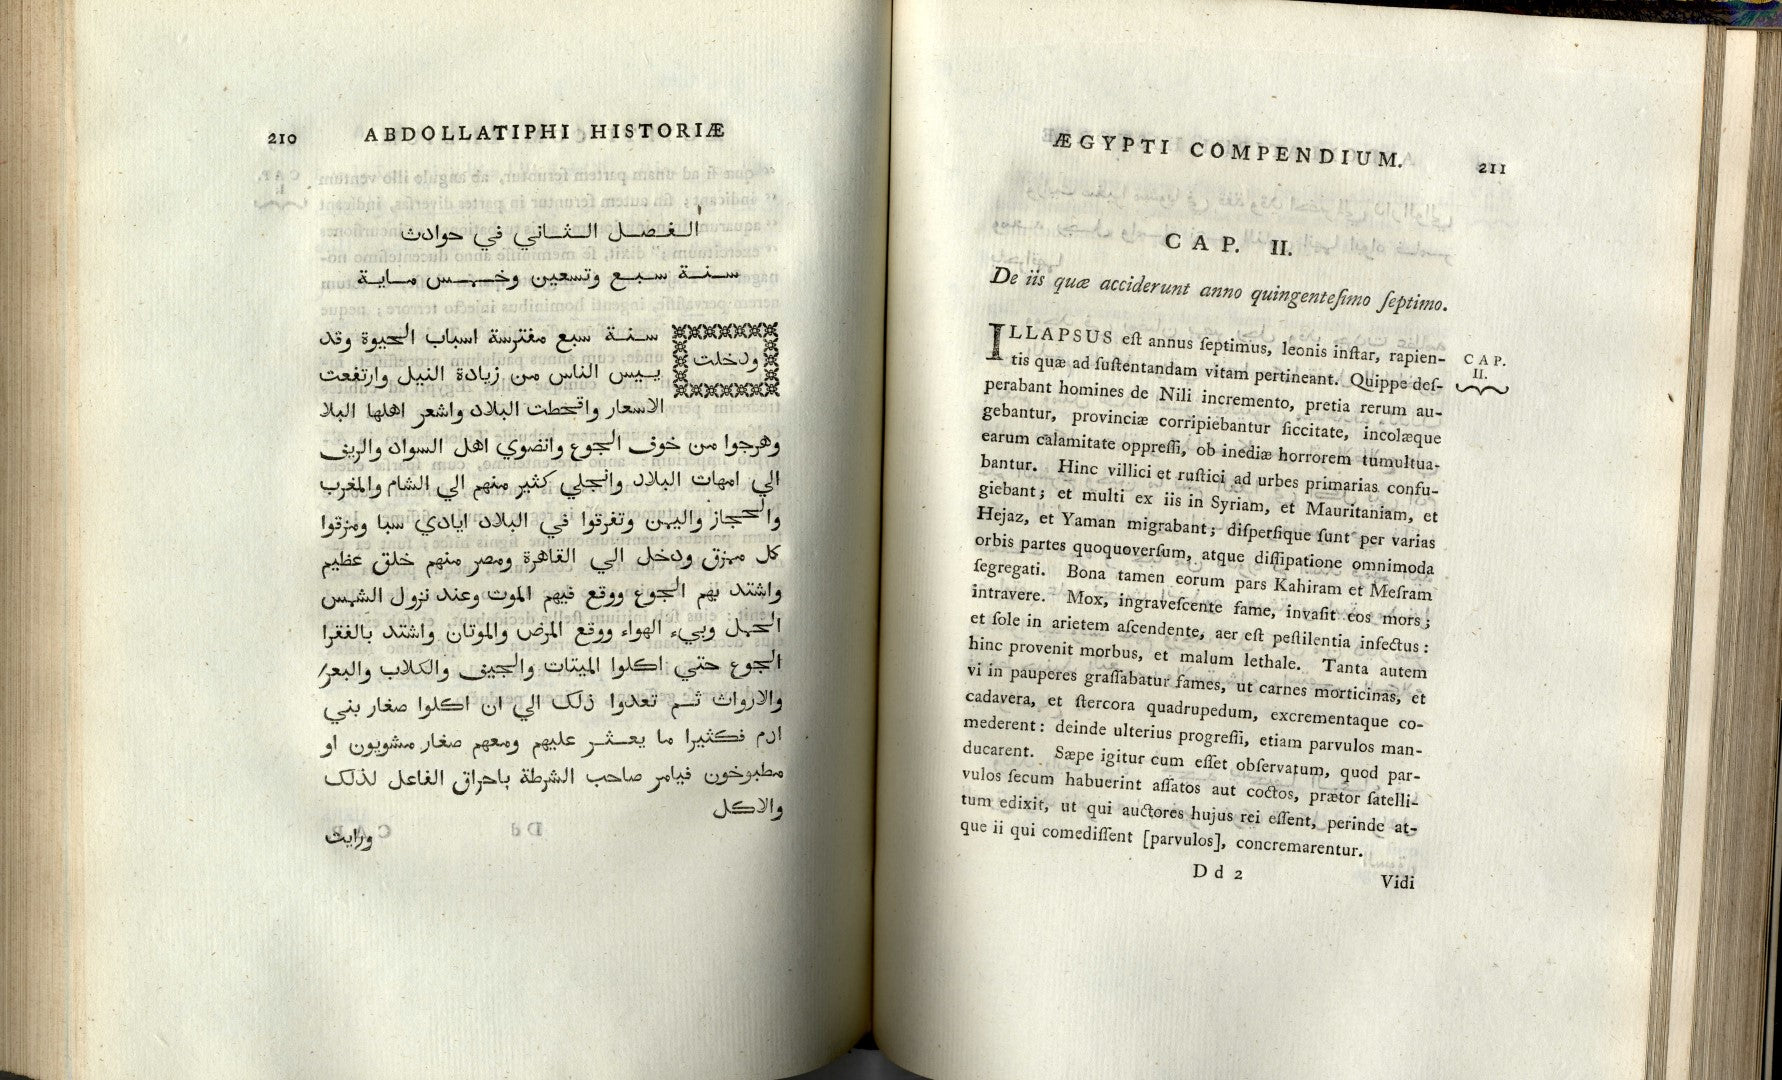 210 ABDOLLATIPHI HISTORIÆ
الفصل الثاني في حوادث
سنة سبع وتسعين وخمس ماية
ودخلت سنة سبع مفترسة اسباب الحيوة وقد
ييس الناس من زيادة النيل وارتفعت
الاسعار واقحطت البلاد واشعر اهلها البلا
وهرجوا من خوف الجوع وانضوي اهل السواد والريف
الي امهات البلاد وانجلي كثير منهم الي الشام والمغرب
والحجاز واليمن وتفرقوا في البلاد ايادي سبا ومزقوا
كل ممزق ودخل الي القاهرة ومصر منهم خلق عظيم
واشتد بهم الجوع ووقع فيهم الموت وعند نزول الشمس
الحمل وبيء الهواء ووقع المرض والموتان واشتد بالفقرا
الجوع حتي اكلوا الميتات والجيف والكلاب والبعر
والارواث ثم تعدوا ذلك الي ان اكلوا صغار بني
ادم فكثيرا ما يعثر عليهم ومعهم صغار مشويون او
مطبوخون فيامر صاحب الشرطة باحراق الفاعل لذلك
والاكل
ورايت
ÆGYPTI COMPENDIUM. 211
CAP. II.
De iis quæ acciderunt anno quingentesimo septimo.
ILLAPSUS eſt annus ſeptimus, leonis inſtar, rapien-
tis quæ ad ſuſtentandam vitam pertineant. Quippe deſ-
perabant homines de Nili incremento, pretia rerum au-
gebantur, provinciæ corripiebantur ſiccitate, incolæque
earum calamitate oppreſſi, ob inediæ horrorem tumultua-
bantur. Hinc villici et ruſtici ad urbes primarias confu-
giebant; et multi ex iis in Syriam, et Mauritaniam, et
Hejaz, et Yaman migrabant; diſperſique ſunt per varias
orbis partes quoquoverſum, atque diſſipatione omnimoda
ſegregati. Bona tamen eorum pars Kahiram et Meſram
intravere. Mox, ingraveſcente fame, invaſit eos mors;
et ſole in arietem aſcendente, aer eſt peſtilentia infectus:
hinc provenit morbus, et malum lethale. Tanta autem
vi in pauperes graſſabatur fames, ut carnes morticinas, et
cadavera, et ſtercora quadrupedum, excrementaque co-
mederent: deinde ulterius progreſſi, etiam parvulos man-
ducarent. Sæpe igitur cum eſſet obſervatum, quod par-
vulos ſecum habuerint aſſatos aut coctos, prætor ſatelli-
tum edixit, ut qui auctores hujus rei eſſent, perinde at-
que ii qui comediſſent [parvulos], concremarentur.
CAP.
II.
Dd 2 Vidi